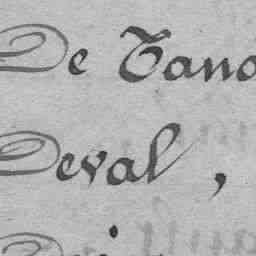 De Tano
Deval,